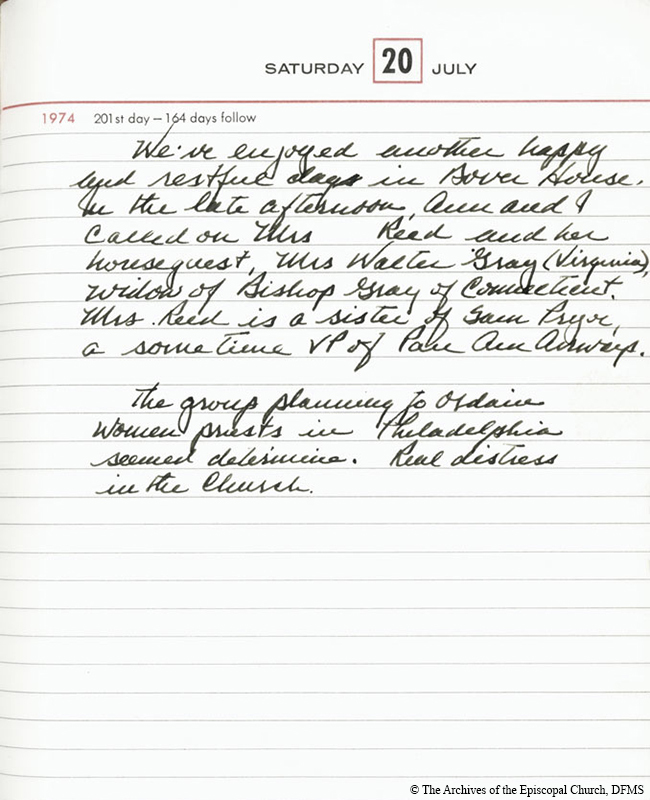 SATURDAY 20 JULY
1974 201st day — 164 days follow
We've enjoyed another happy
and restful days in Bover House.
In the late afternoon, Ann and I
called on Mrs Reed and her
houseguest, Mrs Walter Gray (Virginia),
widow of Bishop Gray of Connecticut.
Mrs. Reed is a sister of Sam Pryor,
a sometime VP of Pan Am Airways.
The group planning to ordain
women priests in Philadelphia
seemed determine. Real distress
in the Church.
© The Archives of the Episcopal Church, DFMS